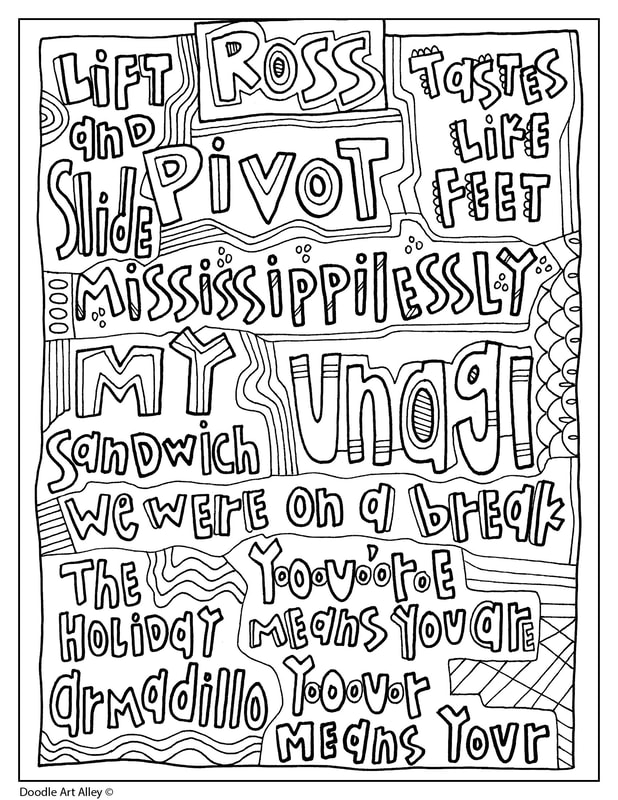 Ross
Lift
and
Slide
Pivot
Tastes
Like
Feet
Mississippilessly
My
Sandwich
Unagi
We were on a break
The
Holiday
armadillo
Y-o-o-u-'-r-e
means you are
Y-o-o-u-r
means your
Doodle Art Alley ©